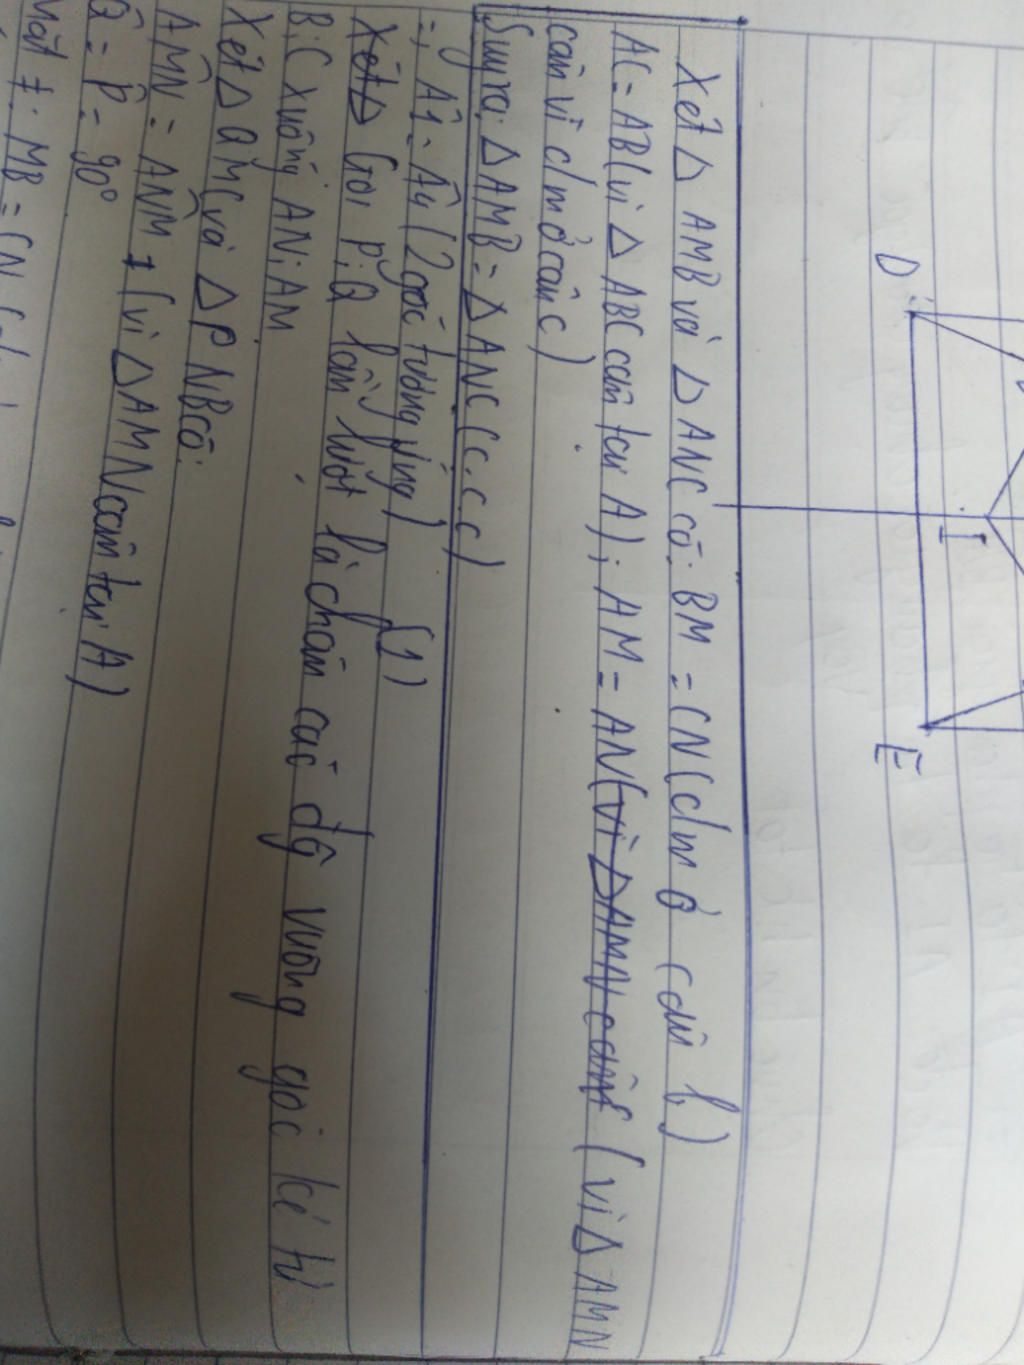 D
I
E
Xét Δ AMB và Δ ANC có: BM = CN (c/m ở câu b)
AC = AB (vì Δ ABC cân tại A); AM = AN (vì Δ AMN cân) (vì Δ AMN
cân vì c/m ở câu c)
Suy ra; Δ AMB = Δ ANC (c.c.c)
=> Â1 = Â4 (2 góc tương ứng) (1)
Xét Δ Gọi P; Q lần lượt là chân các đg vuông góc kẻ từ
B; C xuống AN; AM
Xét Δ QMC và Δ PNB có:
AMN = ANM (vì Δ AMN cân tại A)
Q = P = 90°
Mặt ≠: MB = CN